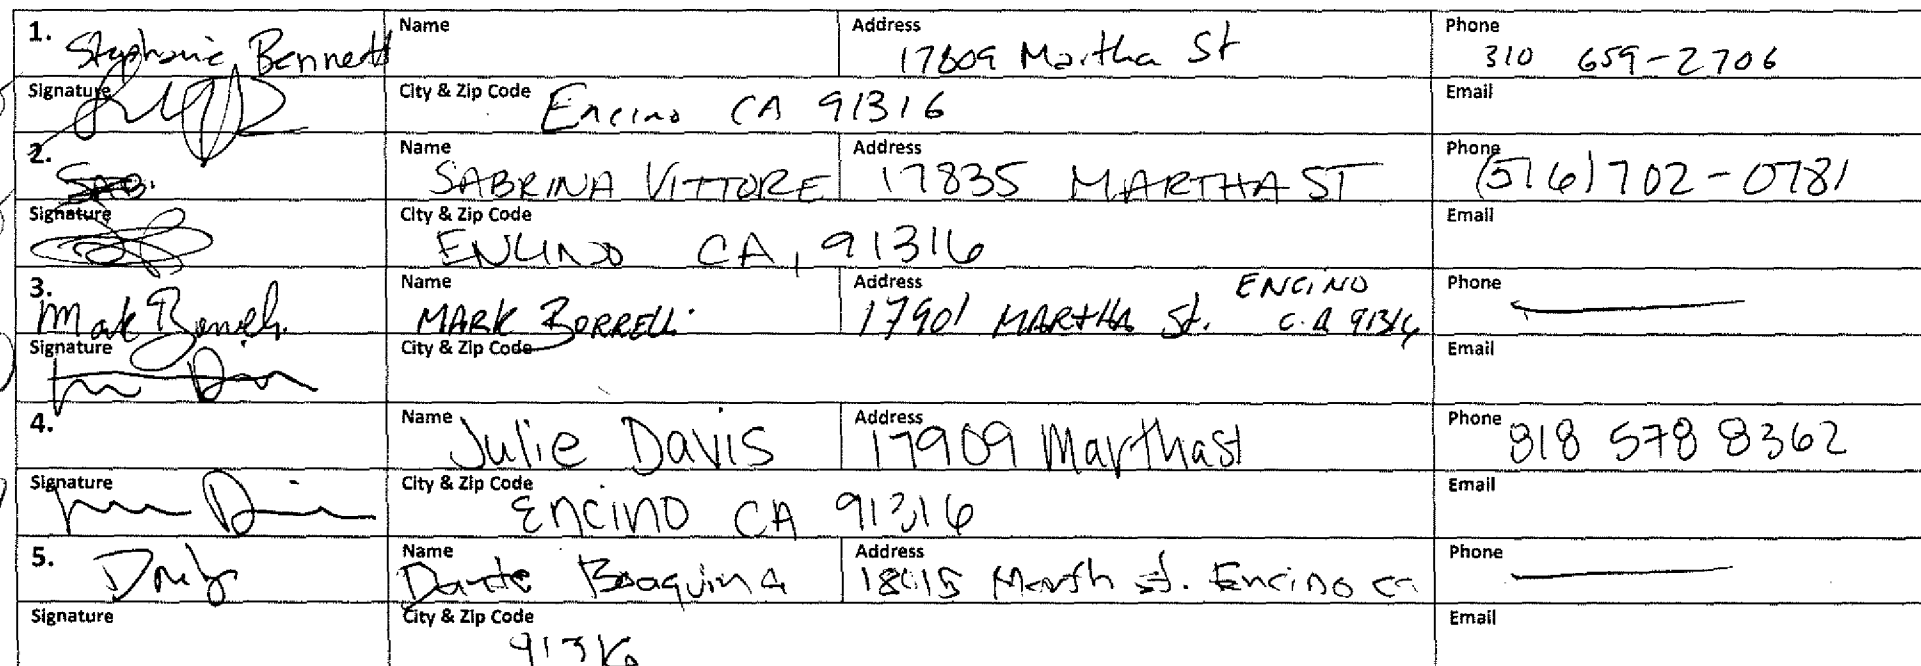 1. Stephanie Bennett Name Address 17809 Martha St Phone 310 659-2706
Signature City & Zip Code Encino CA 91316 Email
2. SAB. Name SABRINA VITTORE Address 17835 MARTHA ST Phone (516) 702-0781
Signature City & Zip Code ENCINO CA, 91316 Email
3. Mark Borrelli Name MARK BORRELLI Address 17901 MARTHA St. ENCINO C.A 91316 Phone
Signature City & Zip Code Email
4. Name Julie Davis Address 17909 Martha St Phone 818 578 8362
Signature City & Zip Code Encino CA 91316 Email
5. Name Dante Address St. Encino ca Phone
Signature City & Zip Code 91316 Email